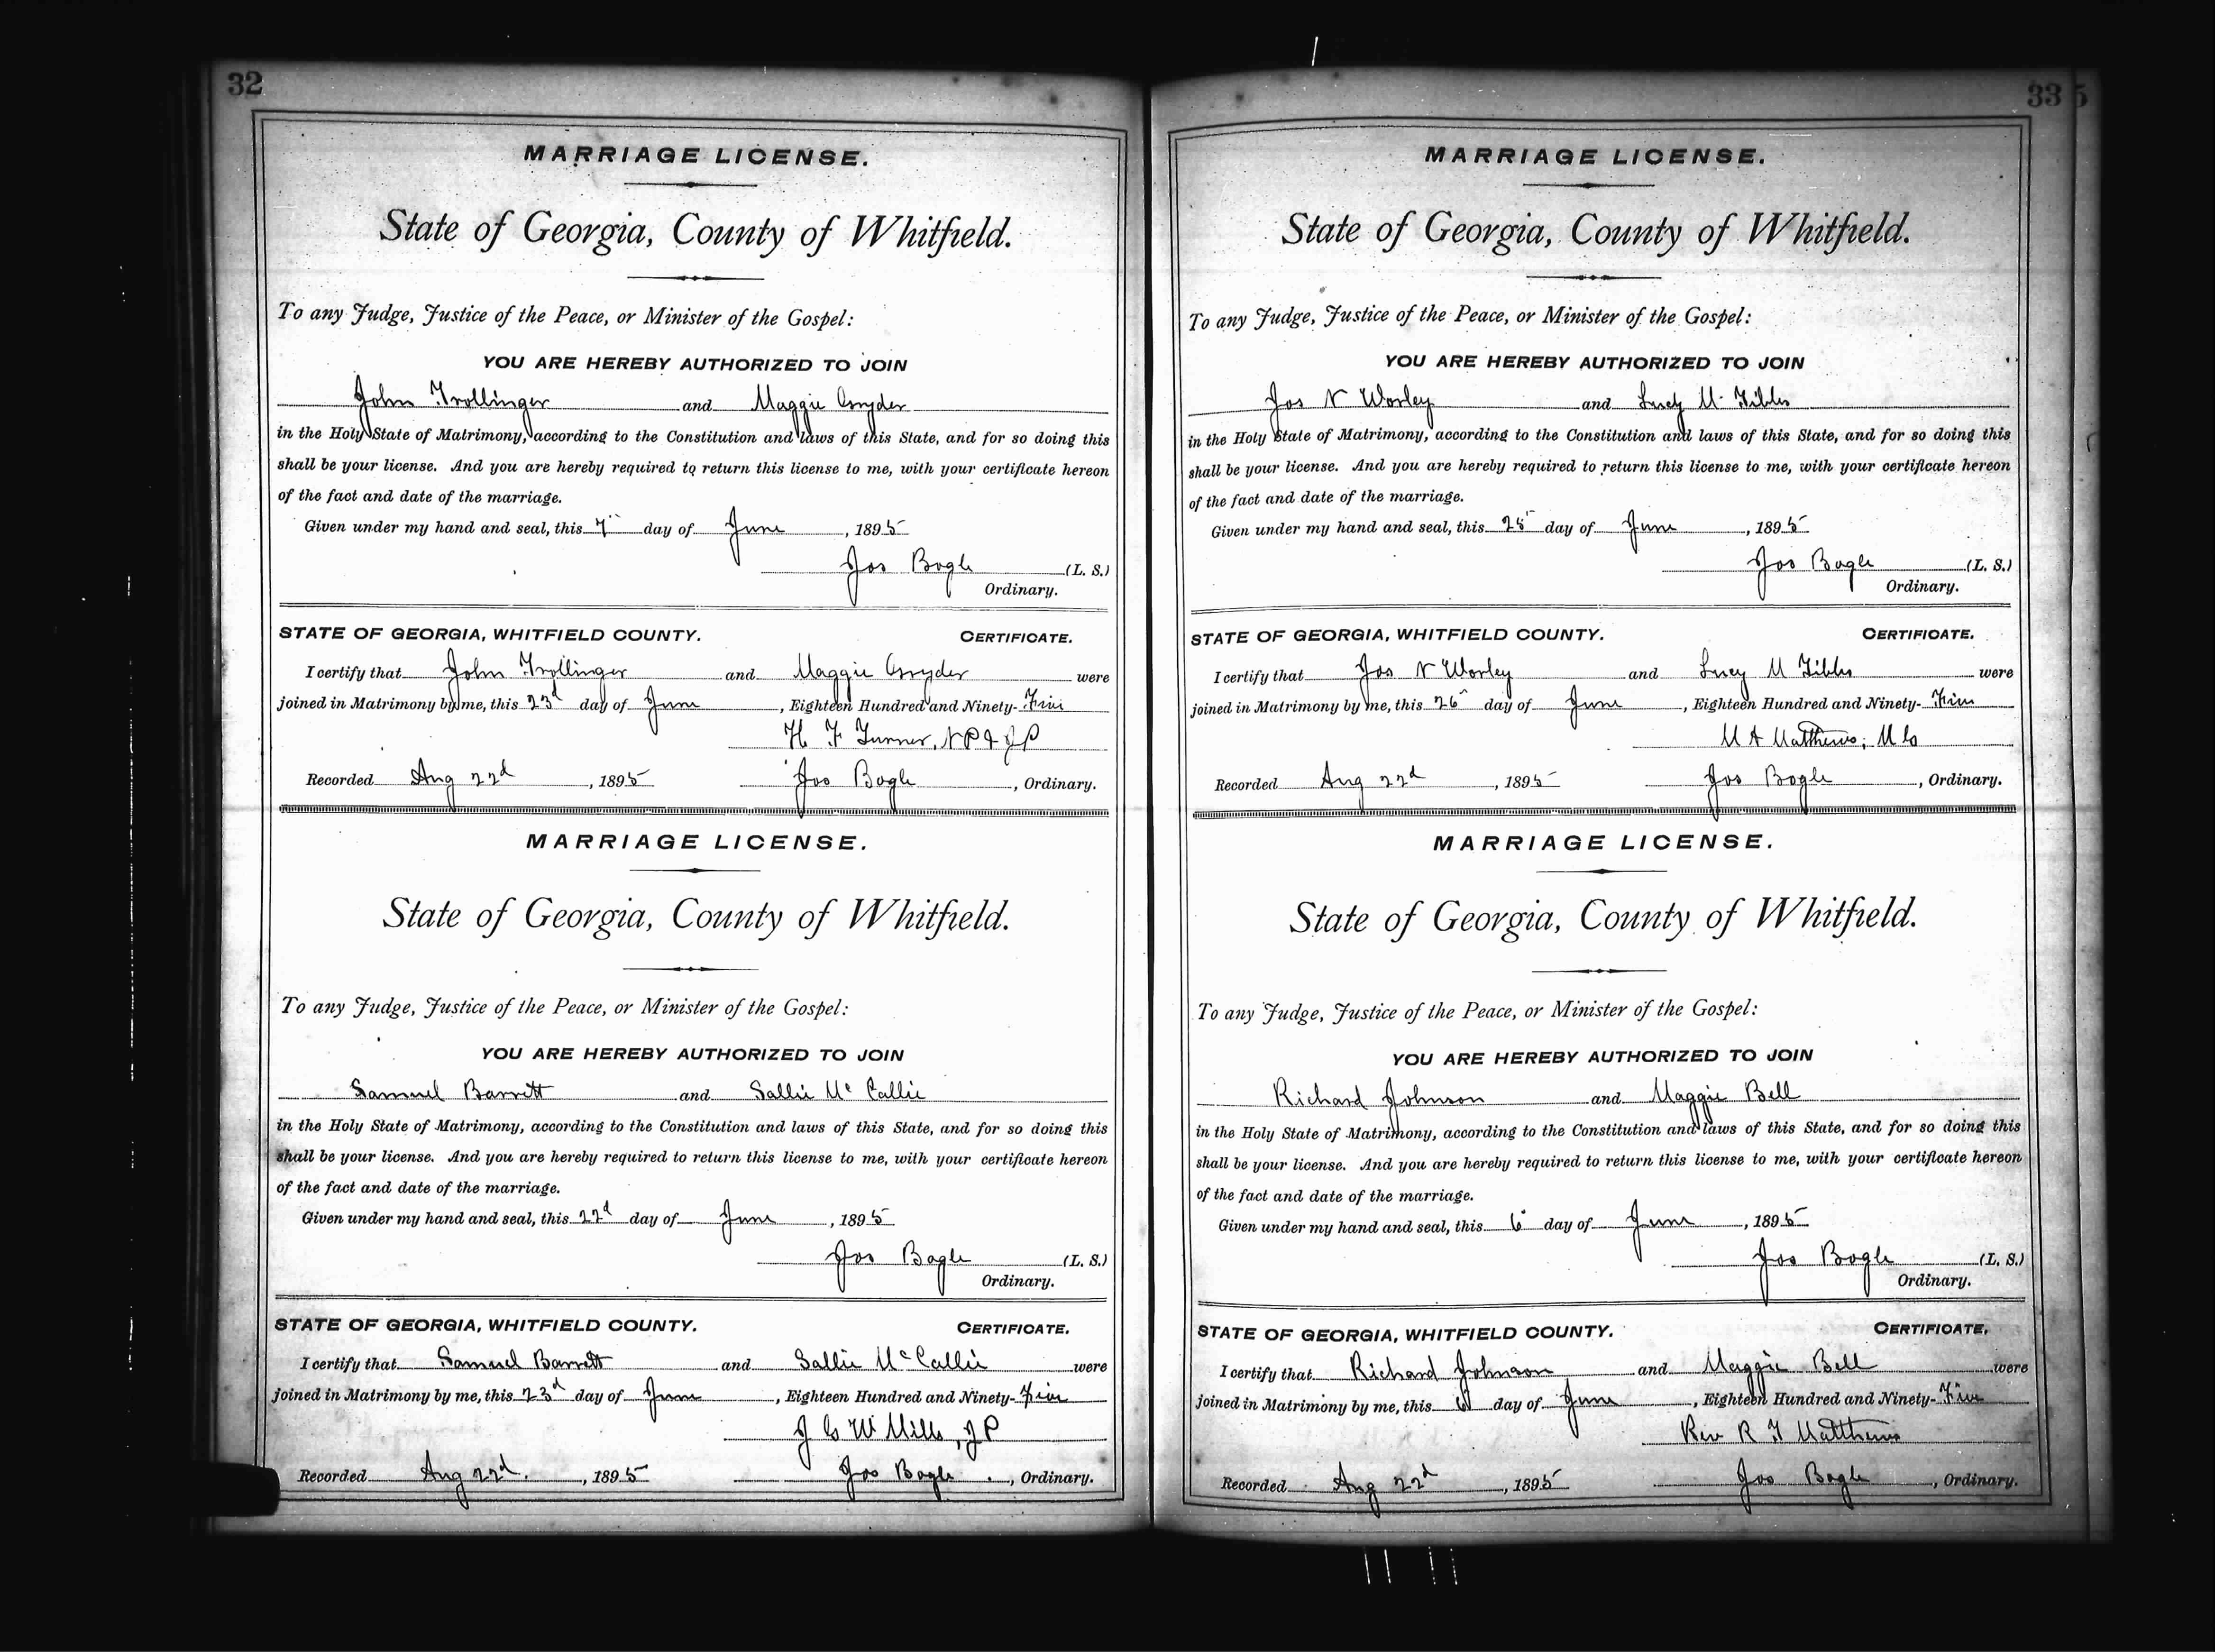 32
MARRIAGE LICENSE.
State of Georgia, County of Whitfield.
To any Judge, Justice of the Peace, or Minister of the Gospel:
YOU ARE HEREBY AUTHORIZED TO JOIN
John Trollinger and Maggie
in the Holy State of Matrimony, according to the Constitution and laws of this State, and for so doing this
shall be your license. And you are hereby required to return this license to me, with your certificate hereon
of the fact and date of the marriage.
Given under my hand and seal, this 7" day of June, 1895
Jos Bogle (L. S.)
Ordinary.
STATE OF GEORGIA, WHITFIELD COUNTY. CERTIFICATE.
I certify that John Trollinger and Maggie were
joined in Matrimony by me, this 23d day of June, Eighteen Hundred and Ninety-Five
H F Turner, NP & JP
Recorded Aug 22d, 1895 Jos Bogle, Ordinary.
MARRIAGE LICENSE.
State of Georgia, County of Whitfield.
To any Judge, Justice of the Peace, or Minister of the Gospel:
YOU ARE HEREBY AUTHORIZED TO JOIN
Samuel Barrett and Sallie McCallie
in the Holy State of Matrimony, according to the Constitution and laws of this State, and for so doing this
shall be your license. And you are hereby required to return this license to me, with your certificate hereon
of the fact and date of the marriage.
Given under my hand and seal, this 22d day of June, 1895
Jos Bogle (L. S.)
Ordinary.
STATE OF GEORGIA, WHITFIELD COUNTY. CERTIFICATE.
I certify that Samuel Barrett and Sallie McCallie were
joined in Matrimony by me, this 23d day of June, Eighteen Hundred and Ninety-Five
J C W Mills, JP
Recorded Aug 22d, 1895 Jos Bogle, Ordinary.
33
MARRIAGE LICENSE.
State of Georgia, County of Whitfield.
To any Judge, Justice of the Peace, or Minister of the Gospel:
YOU ARE HEREBY AUTHORIZED TO JOIN
Jos N Worley and Lucy M. Tibbs
in the Holy State of Matrimony, according to the Constitution and laws of this State, and for so doing this
shall be your license. And you are hereby required to return this license to me, with your certificate hereon
of the fact and date of the marriage.
Given under my hand and seal, this 25" day of June, 1895
Jos Bogle (L. S.)
Ordinary.
STATE OF GEORGIA, WHITFIELD COUNTY. CERTIFICATE.
I certify that Jos N Worley and Lucy M Tibbs were
joined in Matrimony by me, this 26" day of June, Eighteen Hundred and Ninety-Five
M A Matthews, M G
Recorded Aug 22d, 1895 Jos Bogle, Ordinary.
MARRIAGE LICENSE.
State of Georgia, County of Whitfield.
To any Judge, Justice of the Peace, or Minister of the Gospel:
YOU ARE HEREBY AUTHORIZED TO JOIN
Richard Johnson and Maggie Bell
in the Holy State of Matrimony, according to the Constitution and laws of this State, and for so doing this
shall be your license. And you are hereby required to return this license to me, with your certificate hereon
of the fact and date of the marriage.
Given under my hand and seal, this 6" day of June, 1895
Jos Bogle (L. S.)
Ordinary.
STATE OF GEORGIA, WHITFIELD COUNTY. CERTIFICATE.
I certify that Richard Johnson and Maggie Bell were
joined in Matrimony by me, this 6" day of June, Eighteen Hundred and Ninety-Five
Rev R T Matthews
Recorded Aug 22d, 1895 Jos Bogle, Ordinary.